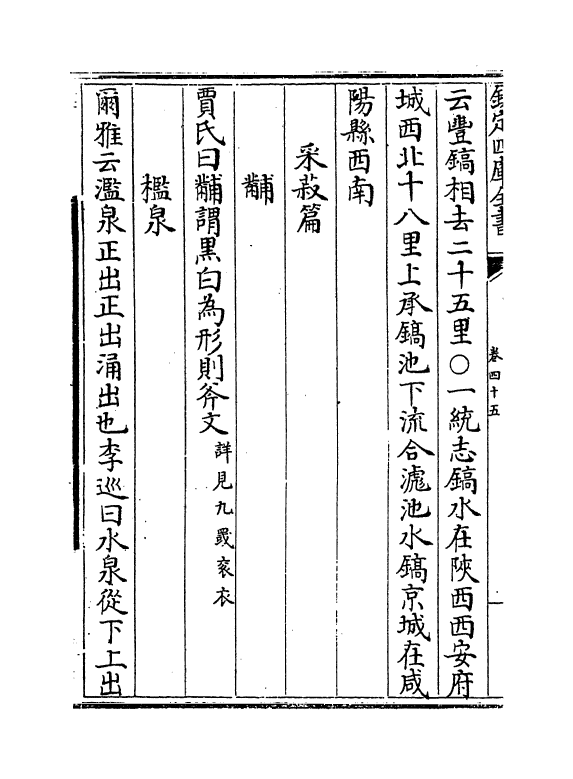 欽定四庫全書
卷四十五
云豐鎬相去二十五里○一統志鎬水在陜西西安府
城西北十八里上承鎬池下流合滮池水鎬京城在咸
陽縣西南
采菽篇
黼
賈氏曰黼謂黑白為形則斧文詳見九罭衮衣
檻泉
爾雅云濫泉正出正出涌出也李巡曰水泉從下上出